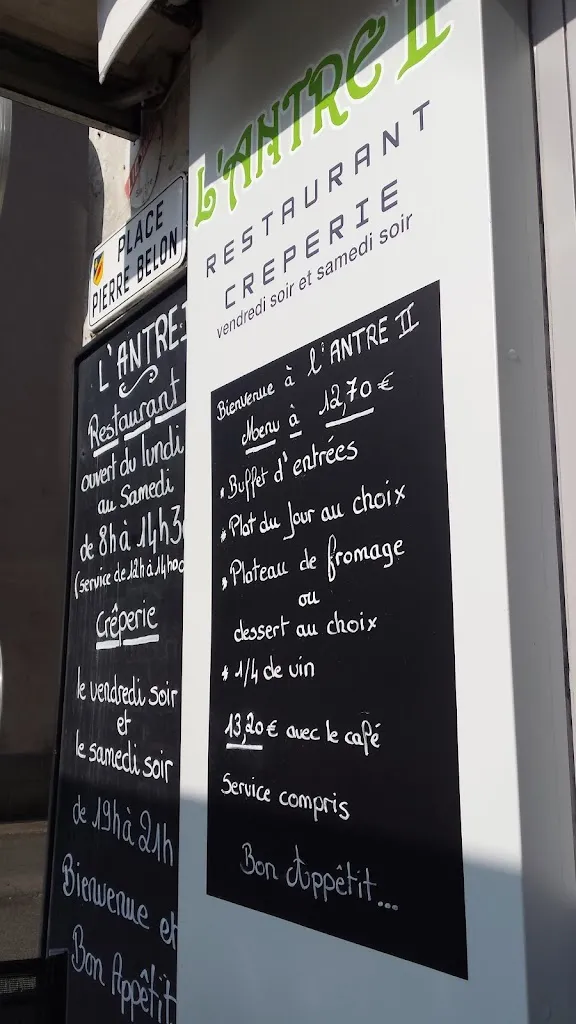 L'ANTRE II
RESTAURANT
CREPERIE
vendredi soir et samedi soir
PLACE
PIERRE BELON
L'ANTRE
Restaurant
ouvert du lundi
au Samedi
de 8h à 14h3
(service de 12h à 14h00
Crêperie
le vendredi soir
et
le samedi soir
de 19h à 21h
Bienvenue et
Bon Appétit
Bienvenue à l'ANTRE II
Menu à 12,70 €
* Buffet d'entrées
* Plat du Jour au choix
* Plateau de fromage
ou
dessert au choix
* 1/4 de vin
13,20 € avec le café
Service compris
Bon Appétit...